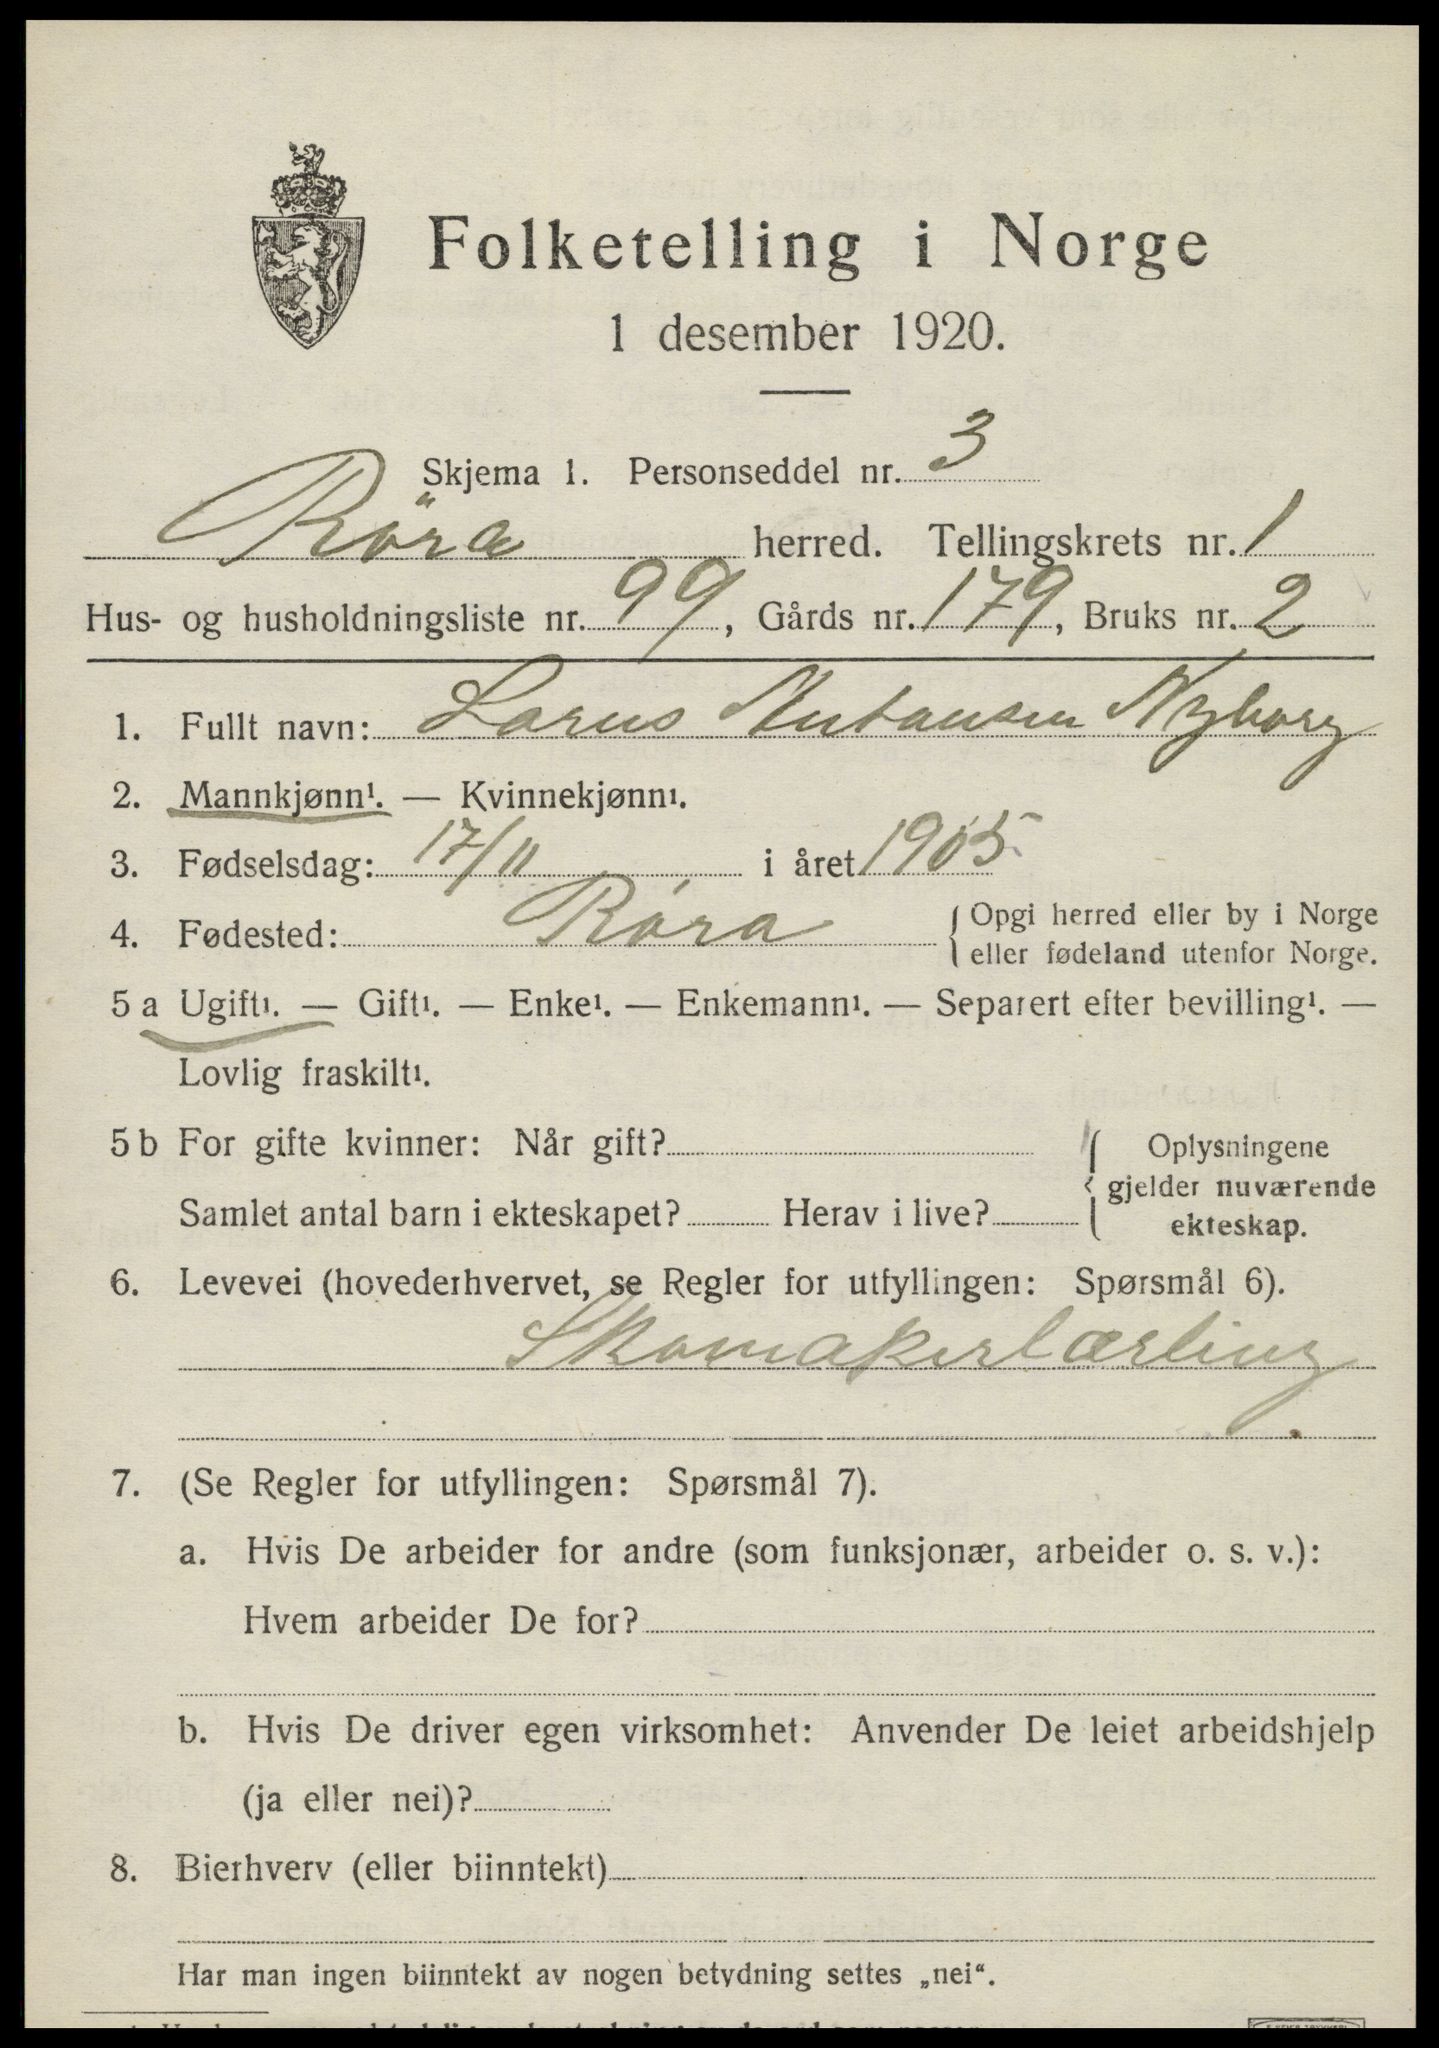 Folketelling i Norge
1 desember 1920.
Skjema 1. Personseddel nr. 3
Röra herred. Tellingskrets nr. 1
Hus- og husholdningsliste nr. 99, Gårds nr. 179, Bruks nr. 2
1. Fullt navn: Lorns Antonsen Nyborg
2. Mannkjønn¹. — Kvinnekjønn¹.
3. Fødselsdag: 17/11 i året 1905
4. Fødested: Róra { Opgi herred eller by i Norge
eller fødeland utenfor Norge.
5 a Ugift¹. — Gift¹. — Enke¹. — Enkemann¹. — Separert efter bevilling¹. —
Lovlig fraskilt¹.
5 b For gifte kvinner: Når gift? { Oplysningene
gjelder nuværende
Samlet antal barn i ekteskapet? Herav i live? ekteskap.
6. Levevei (hovederhvervet, se Regler for utfyllingen: Spørsmål 6).
Skomakerlærling
7. (Se Regler for utfyllingen: Spørsmål 7).
a. Hvis De arbeider for andre (som funksjonær, arbeider o. s. v.):
Hvem arbeider De for?
b. Hvis De driver egen virksomhet: Anvender De leiet arbeidshjelp
(ja eller nei)?
8. Bierhverv (eller biinntekt)
Har man ingen biinntekt av nogen betydning settes „nei“.